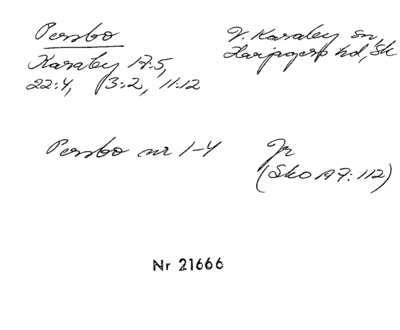 Persbo
V. Karaby sn,
Karaby 17:5,
Harjagers hd, Sk
22:4, 13:2, 11:12
Persbo nr 1-4
Jr
(Sko A 7:112)
Nr 21666